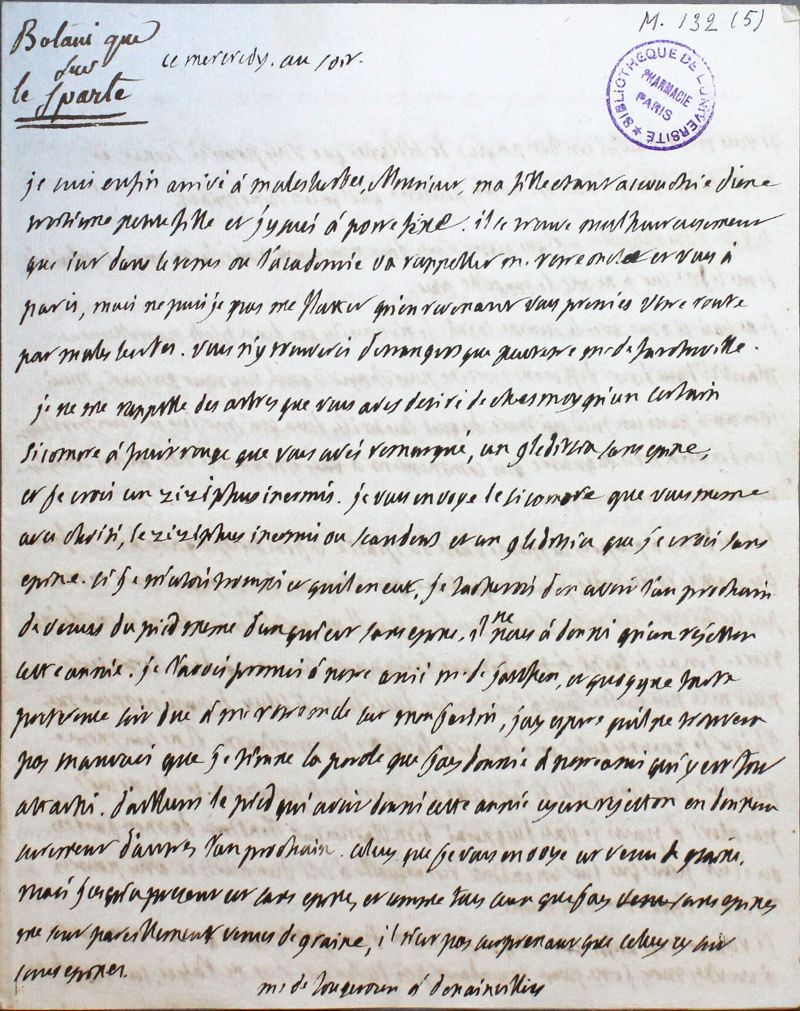 M. 132 (5)
Botanique
sur
le sparte
ce mercredy. au soir.
BIBLIOTHÈQUE DE L'UNIVERSITÉ
PHARMACIE
PARIS
je suis enfin arrivé à malesherbes, Monsieur, ma fille etant accouchée d'une
troisieme petite fille et jusques à il se trouve malheureusement
que c'est dans le tems ou l'académie va rappeller mr. votre oncle et vous à
paris, mais ne puis je pas me flatter qu'en revenant vous prenies votre route
par malesherbes. vous n'y trouverés d'etrangers que peutetre mr. de
je ne me rappelle des arbres que vous avés desiré de ches moy qu'un certain
sicomore à fruit rouge que vous avés remarqué, un gleditsia sans epine,
et je crois un ziziphus inermis. je vous envoye le sicomore que vous meme
avés choisi, le ziziphus inermis ou scandens et un gleditsia que je crois sans
epine. si je m'etois trompé et qu'il en eut, je tacherai d'en avoir l'an prochain
de venus du pied meme d'un qui est sans epine, il ne nous a donné qu'un rejetton
cette année. je l'avois promis à notre ami mr. de et quoyque toute
préférence soit due à mr. votre oncle sur mon jardin, j'ay espéré qu'il ne trouvera
pas mauvais que je tienne la parole que j'ay donnée à notre ami qui y est fort
attaché. d'ailleurs le pied qui avoit donné cette année un rejetton en donnera
surement d'autres l'an prochain. celuy que je vous envoye est venu de graine,
mais jusqu'à present est sans epines, et comme tous ceux que j'ay sans epines
me sont pareillement venus de graine, il n'est pas surprenant que celuy cy soit
sans epines.
mr. de fougeroux à denainvilliers